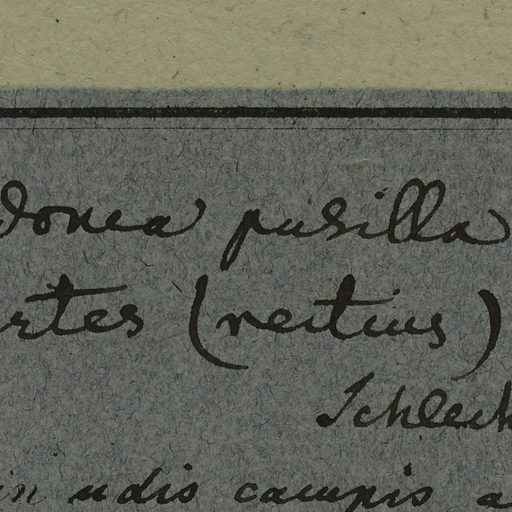 donea pusilla
rtes (nertius)
Schlech
in udis campis a